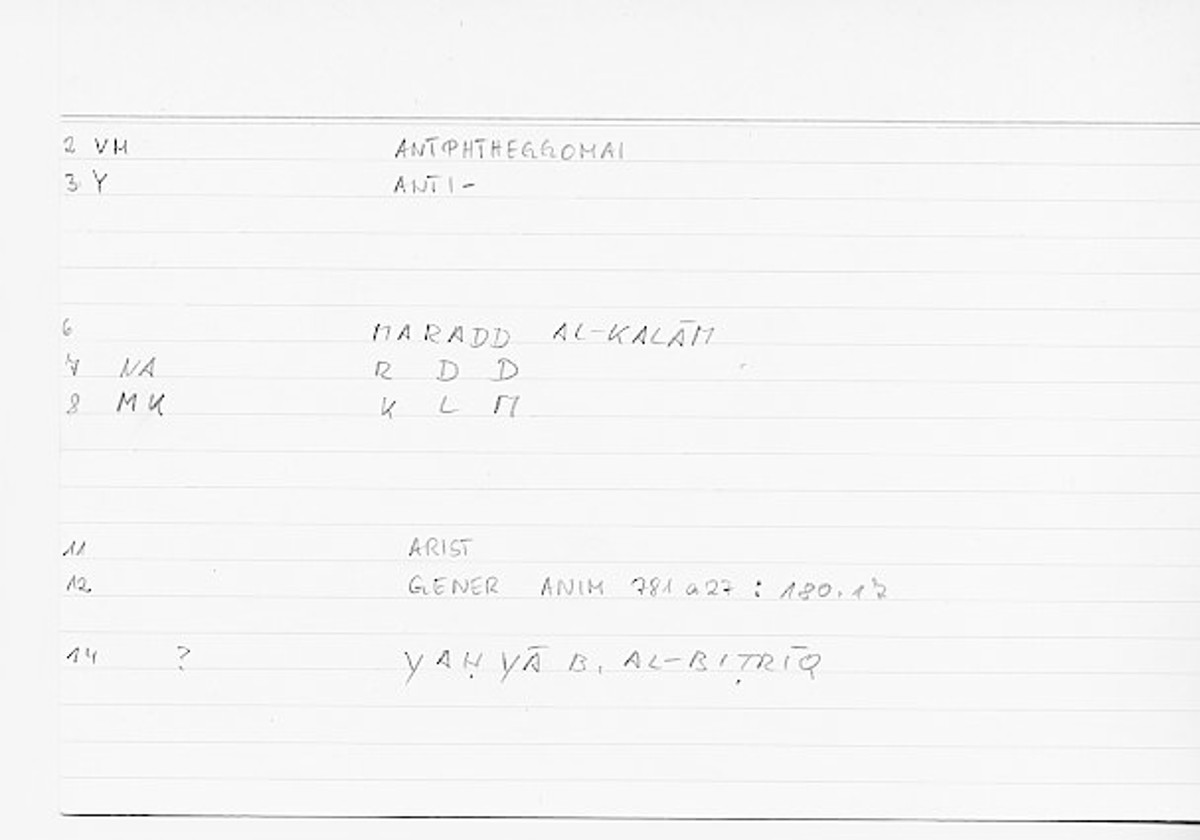 2 VM ANTIPHTHEGGOMAI
3 Y ANTI-
6 MARADD AL-KALĀM
7 NA R D D
8 MK K L M
11 ARIST
12 GENER ANIM 781a27 : 180.17
14 ? YAḤYĀ B. AL-BIṬRĪQ